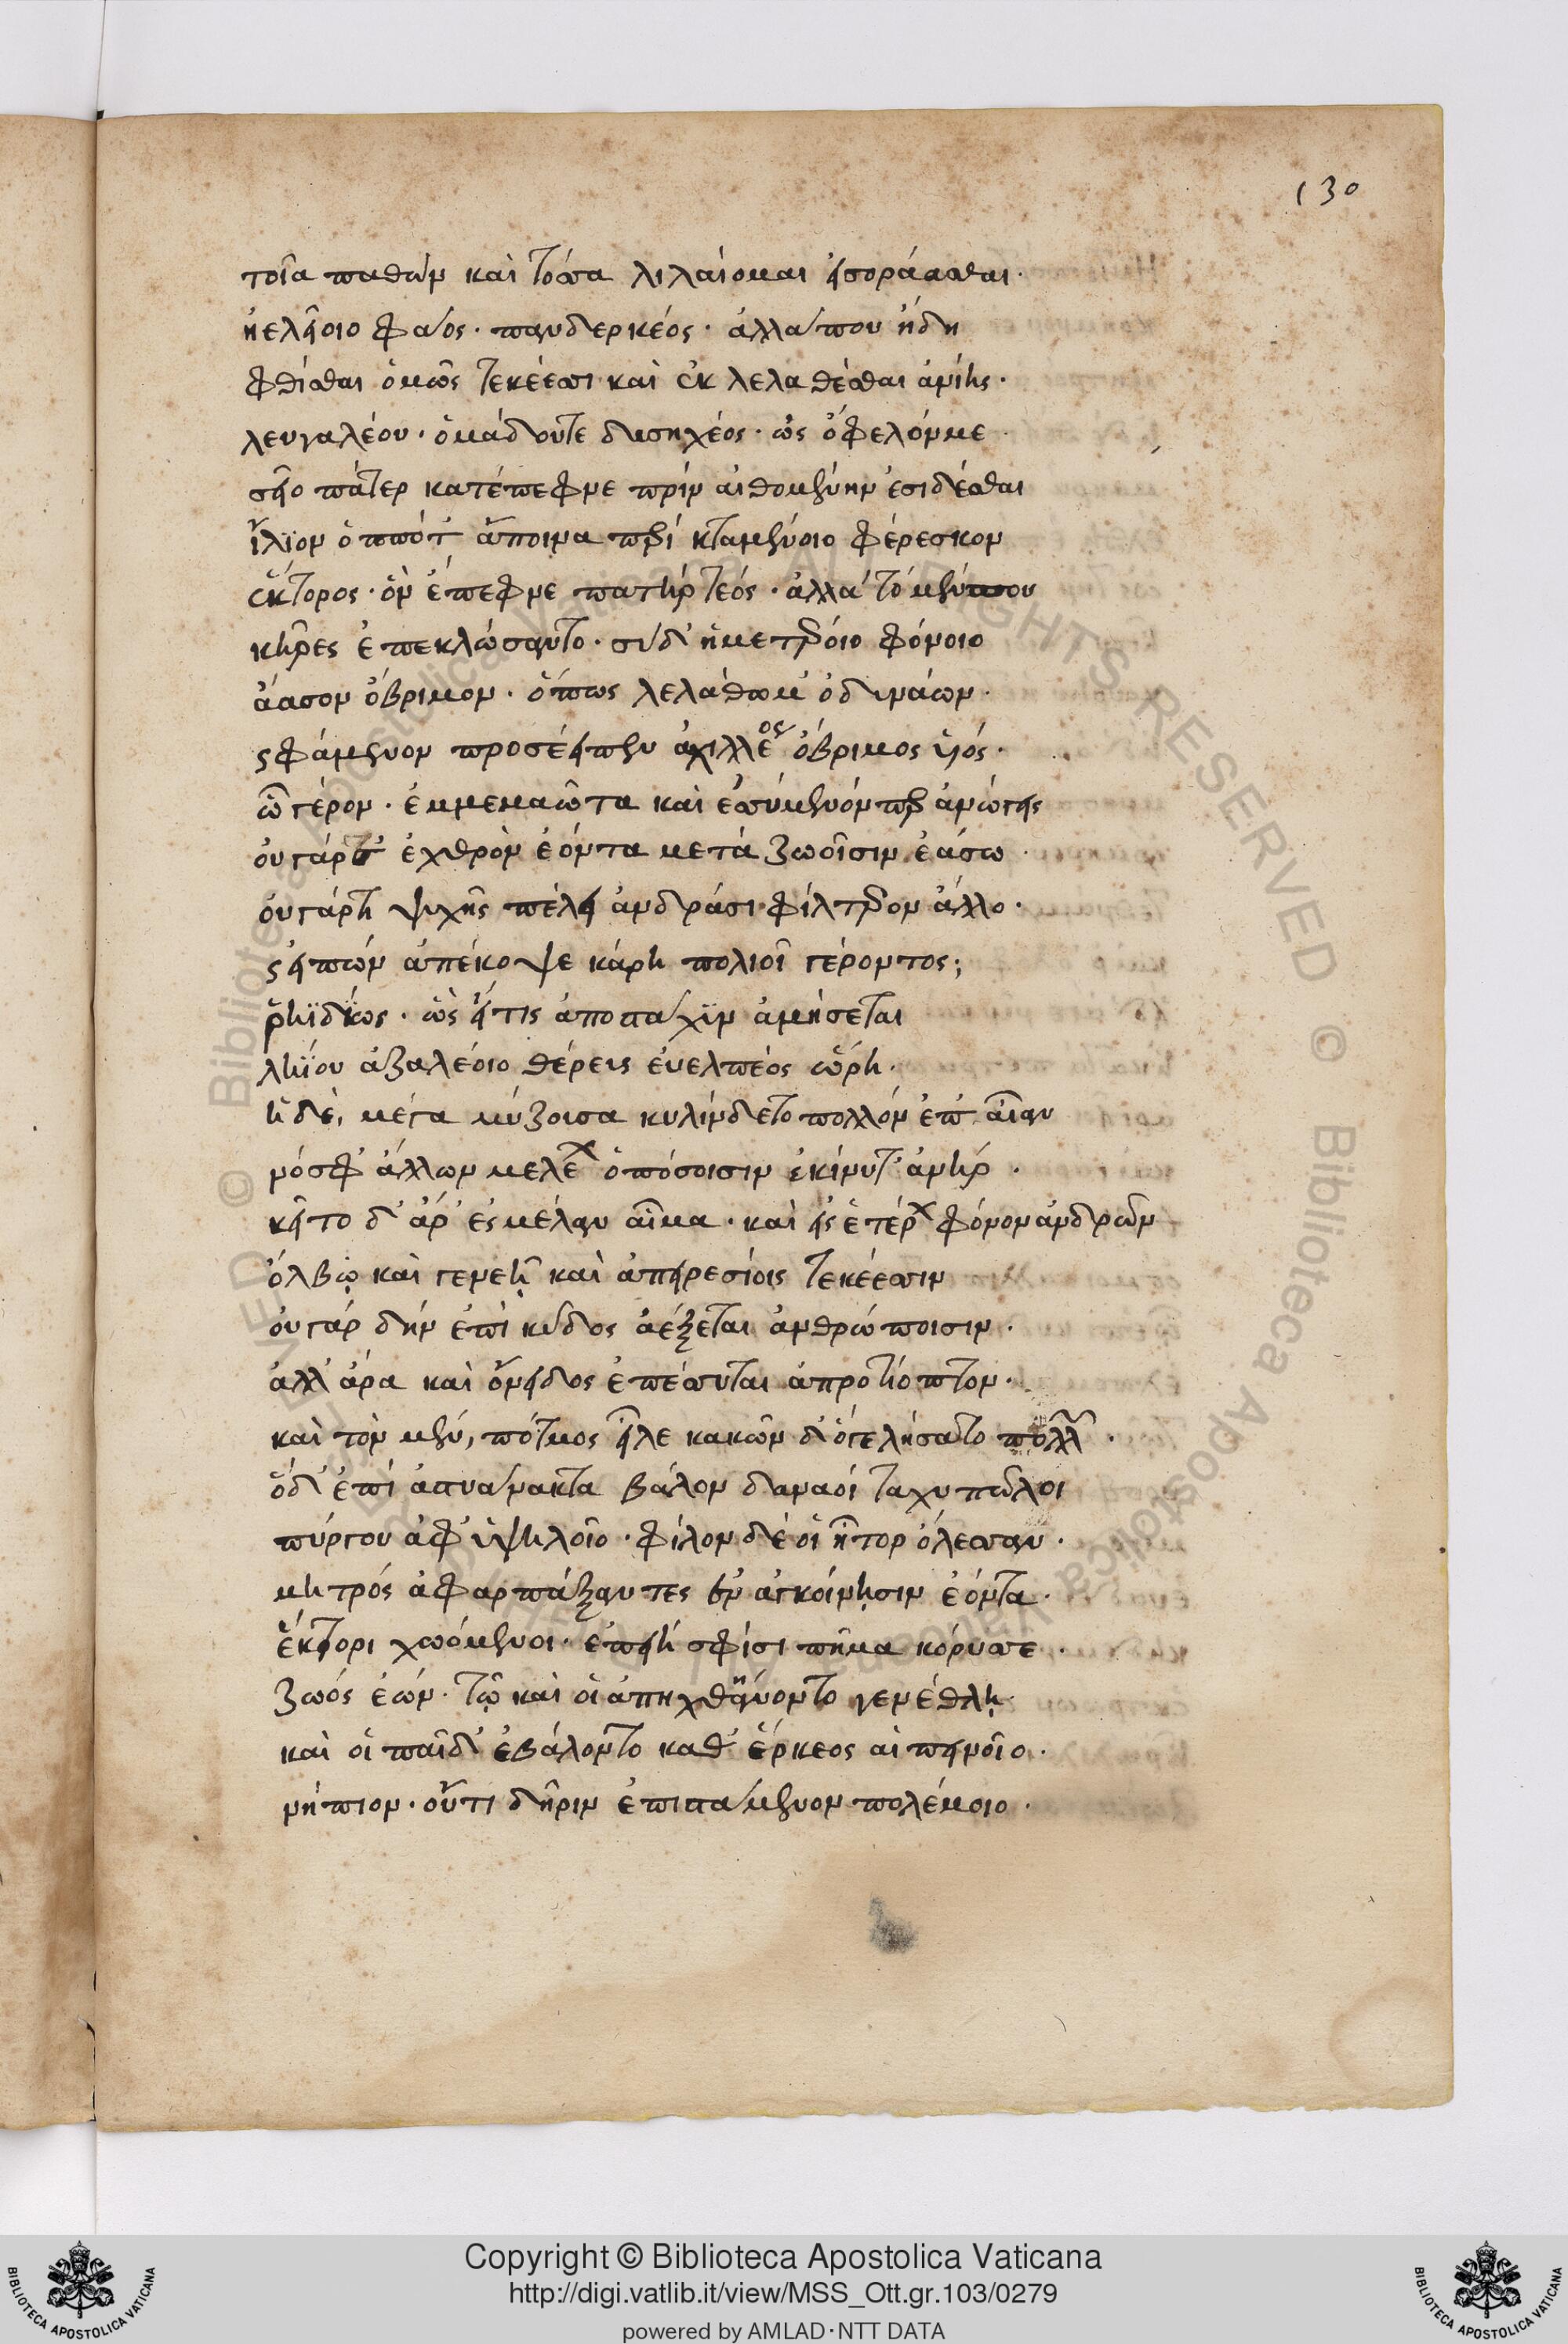 130
τοῖα παθὼν καὶ τόσσα λιλαίομαι εἰσοράασθαι·
ἠελείοιο φάος· πανδερκέος· ἀλλά που ἤδη
φθίσθαι ὁμῶς τεκέεσσι καὶ ἐκ λελαθέσθαι ἀνίης·
λευγαλέου· ὁμάδου τε δυσηχέος· ὡς ὄφελόν με
σεῖο πάτερ κατέπεφνε πρὶν αἰθομένην ἐσιδέσθαι
ἴλϊον ὁππότ' ἄποινα περὶ κταμένοιο φέρεσκον
ἕκτορος· ὃν ἔπεφνε πατὴρ τεός· ἀλλὰ τὸ μέν που
κῆρες ἐπεκλώσαντο· σὺ δ' ἡμετέροιο φόνοιο
ἄασον ὄβριμον· ὅπως λελάθωμ' ὀδυνάων·
ς φάμενον προσέειπεν ἀχιλλέος ὄβριμος υἱός·
ὦ γέρον· ἐμμεμαῶτα καὶ ἐσσύμενόν περ ἀνώγεις
οὐ γάρ σ' ἐχθρὸν ἐόντα μετὰ ζωοῖσιν ἐάσω·
οὐ γάρ τι ψυχῆς πέλει ἀνδράσι φίλτερον ἄλλο·
ς εἰπὼν ἀπέκοψε κάρη πολιοῖ γέροντος;
ῥηϊδίως· ὡς εἴ τις ἀπὸ στάχϊν ἀμήσεται
ληΐου ἀζαλέοιο θέρευς εὐελπέος ὥρη·
ἡ δὲ, μέγα μύζουσα κυλίνδετο πολλὸν ἐπ' αἶαν
νόσφ' ἄλλων μελέων ὁπόσοισιν ἐκίνυτ' ἀνήρ·
κεῖτο δ' ἄρ' ἐς μέλαν αἷμα· καὶ εἰς ἑτέρων φόνον ἀνδρῶν
ὄλβῳ καὶ γενεῇ καὶ ἀπειρεσίοις τεκέεσσιν
οὐ γὰρ δὴν ἐπὶ κῦδος ἀέξεται ἀνθρώποισιν·
ἀλλ' ἄρα καὶ ὄνειδος ἐπέσσυται ἀπροτίοπτον·
καὶ τὸν μέν, πότμος εἷλε κακῶν δ' ὅγε λήσατο πολλῶν·
οἱ δ' ἐπὶ ἀστυάνακτα βάλον δαναοὶ ταχυπῶλοι
πύργου ἀφ' ὑψηλοῖο· φίλον δέ οἱ ἦτορ ὄλεσσαν·
μητρὸς ἀφαρπάξαντες ἐν ἀγκοίνῃσιν ἐόντα·
ἕκτορι χωόμενοι· ἐπειὴ σφίσι πῆμα κόρυσσε·
ζωὸς ἐών· τῷ καὶ οἱ ἀπηχθήνοντο γενέθλῃ·
καὶ οἱ παῖδ' ἐβάλοντο καθ' ἕρκεος αἰπεινοῖο·
νήπιον· οὔτι δῆριν ἐπιστάμενον πολέμοιο·
Copyright © Biblioteca Apostolica Vaticana
http://digi.vatlib.it/view/MSS_Ott.gr.103/0279
powered by AMLAD·NTT DATA